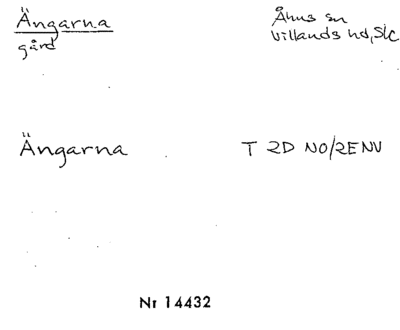 Ängarna
gård
Åhus sn
Villands hd, Sk
Ängarna
T 2D NO/2E NV
Nr 14432